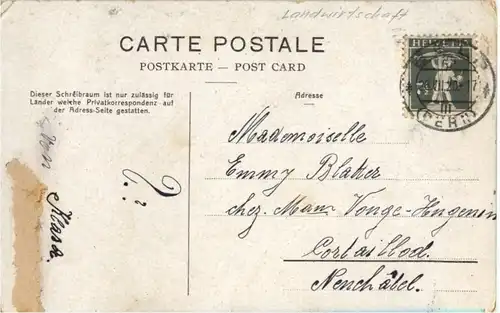 Landwirtschaft
CARTE POSTALE
POSTKARTE – POST CARD
Dieser Schreibraum ist nur zulässig für
Länder welche Privatkorrespondenz auf
der Adress-Seite gestatten.
Adresse
HELVETIA
Klara.
Mademoiselle
Emmy Blaker
chez Mam Vouge-Hugenin
Cortaillod.
Neuchâtel.